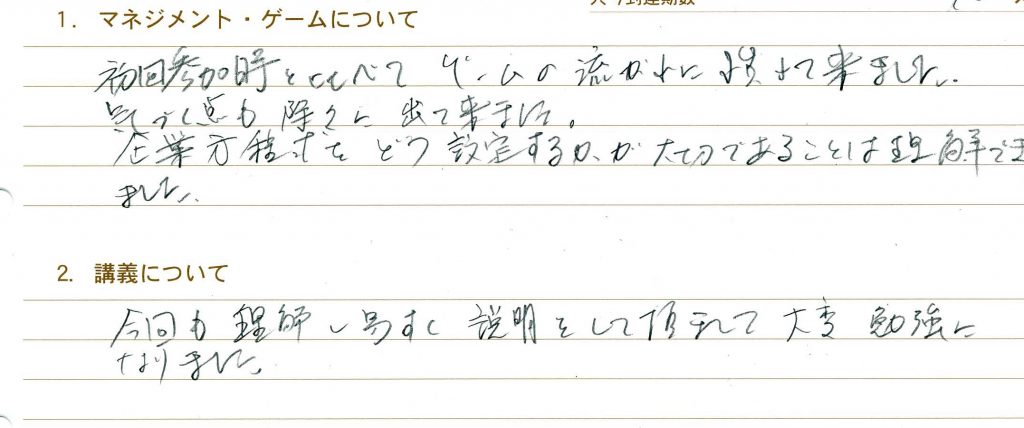 1. マネジメント・ゲームについて
初回参加時とくらべて ゲームの流がれに慣れて来ました。
気づく点も除々に出て来ました。
企業方程式をどう設定するか、が大切であることは理解でき
ました。
2. 講義について
今回も理解し易すく説明をして頂きまして大変勉強に
なりました。